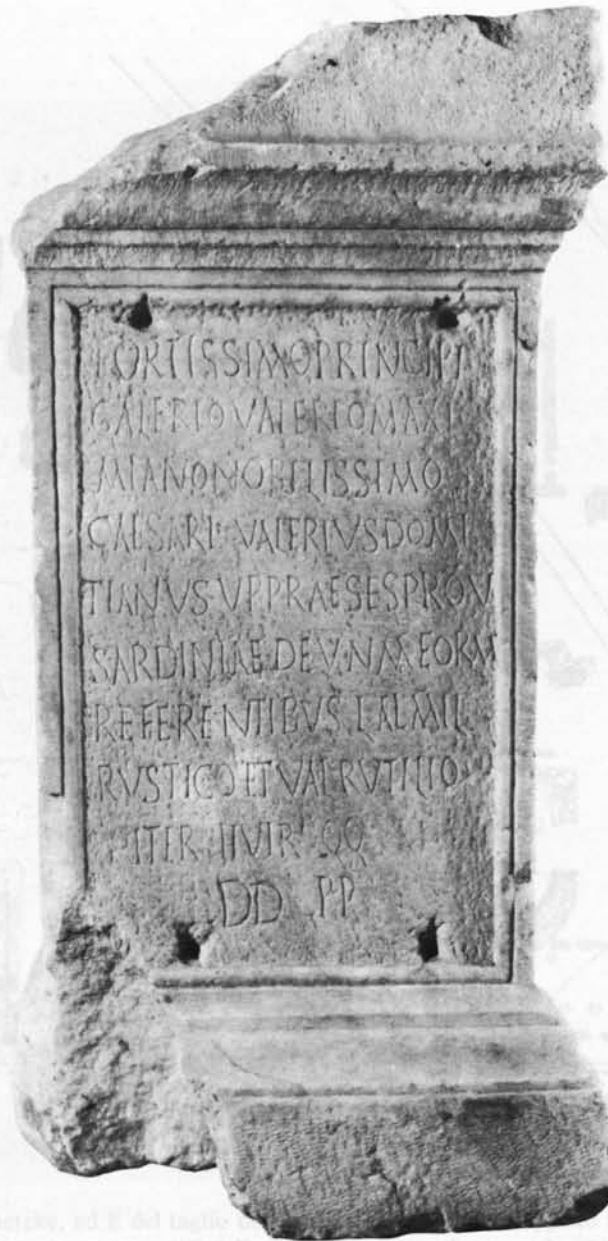 FORTISSIMO PRINCIPI
GALERIO VALERIO MAXI
MIANO NOBILISSIMO
CAESARI · VALERIVS DOMI
TIANVS · V P PRAESES PROV
SARDINIAE DEV · N M EORVM
REFERENTIBVS L AL MIL
RVSTICO ET VAL RVTILIO
P ITER IIVIR QQ
DD PP
del taglio